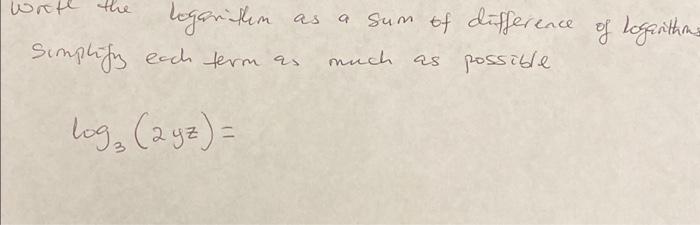 Write the logarithm as a sum of difference of logarithms
Simplify each term as much as possible
log₃ (2yz) =